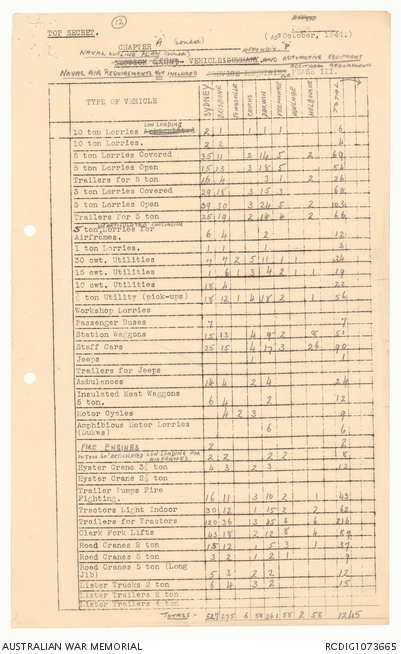 TOP SECRET.
12
(10th October, 1944.)
CHAPTER A
NAVAL OUTLINE PLAN
APPENDIX "P"
VEHICLES AND AUTOMOTIVE EQUIPMENT
NAVAL AIR REQUIREMENTS NOT INCLUDED
PHASE III.
TYPE OF VEHICLE SYDNEY BRISBANE TOWNSVILLE CAIRNS DARWIN FREMANTLE ADELAIDE MELBOURNE TOTAL
LOW LOADING
10 ton Lorries 2 1 1 1 1 6
10 ton Lorries. 2 2 4
5 ton Lorries Covered 35 11 2 14 5 2 69
5 ton Lorries Open
Trailers for 5 ton 16 4 3 1 2 26
3 ton Lorries Covered 29 18 3 15 3 68
3 ton Lorries Open 39 30 3 24 5 2 103
Trailers for 3 ton 25 19 2 14 4 2 66
5 ton Lorries for
Airframes. 6 4 2 12
1 ton Lorries. 1 1 1 3
30 cwt. Utilities 7 7 2 5 11 1 1 34
15 cwt. Utilities 1 6 1 3 4 2 1 1 19
10 cwt. Utilities 18 4 22
½ ton Utility (pick-ups) 18 12 1 4 18 2 1 56
Workshop Lorries
Passenger Buses 7 7
Station Waggons 15 13 4 9 2 8 51
Staff Cars 25 15 4 17 3 26 90
Jeeps 1 1
Trailers for Jeeps
Ambulances 14 4 2 4 24
Insulated Meat Waggons
5 ton. 6 4 2 12
Motor Cycles 4 2 3 9
Amphibious Motor Lorries
(Dukws) 6 6
FIRE ENGINES 2 2
10 TON 60' ARTICULATED LOW LOADING FOR
AIRFRAMES 2 2 2 2 8
Hyster Crane 3½ ton 4 3 2 3 12
Hyster Crane 2½ ton
Trailer Pumps Fire
Fighting. 16 11 3 10 2 1 43
Tractors Light Indoor 30 12 1 15 2 2 62
Trailers for Tractors 120 36 3 45 6 6 216
Clark Fork Lifts 43 18 2 12 8 4 87
Road Cranes 2 ton 15 12 1 5 3 1 37
Road Cranes 3 ton 3 2 1 2 1 9
Road Cranes 5 ton (Long
Jib) 5 3 2 2 12
Lister Trucks 2 ton 6 4 3 2 15
Lister Trailers 2 ton
Lister Trailers 4 ton
TOTALS:- 527 275 6 58 261 58 2 58 1245
AUSTRALIAN WAR MEMORIAL
RCDIG1073665